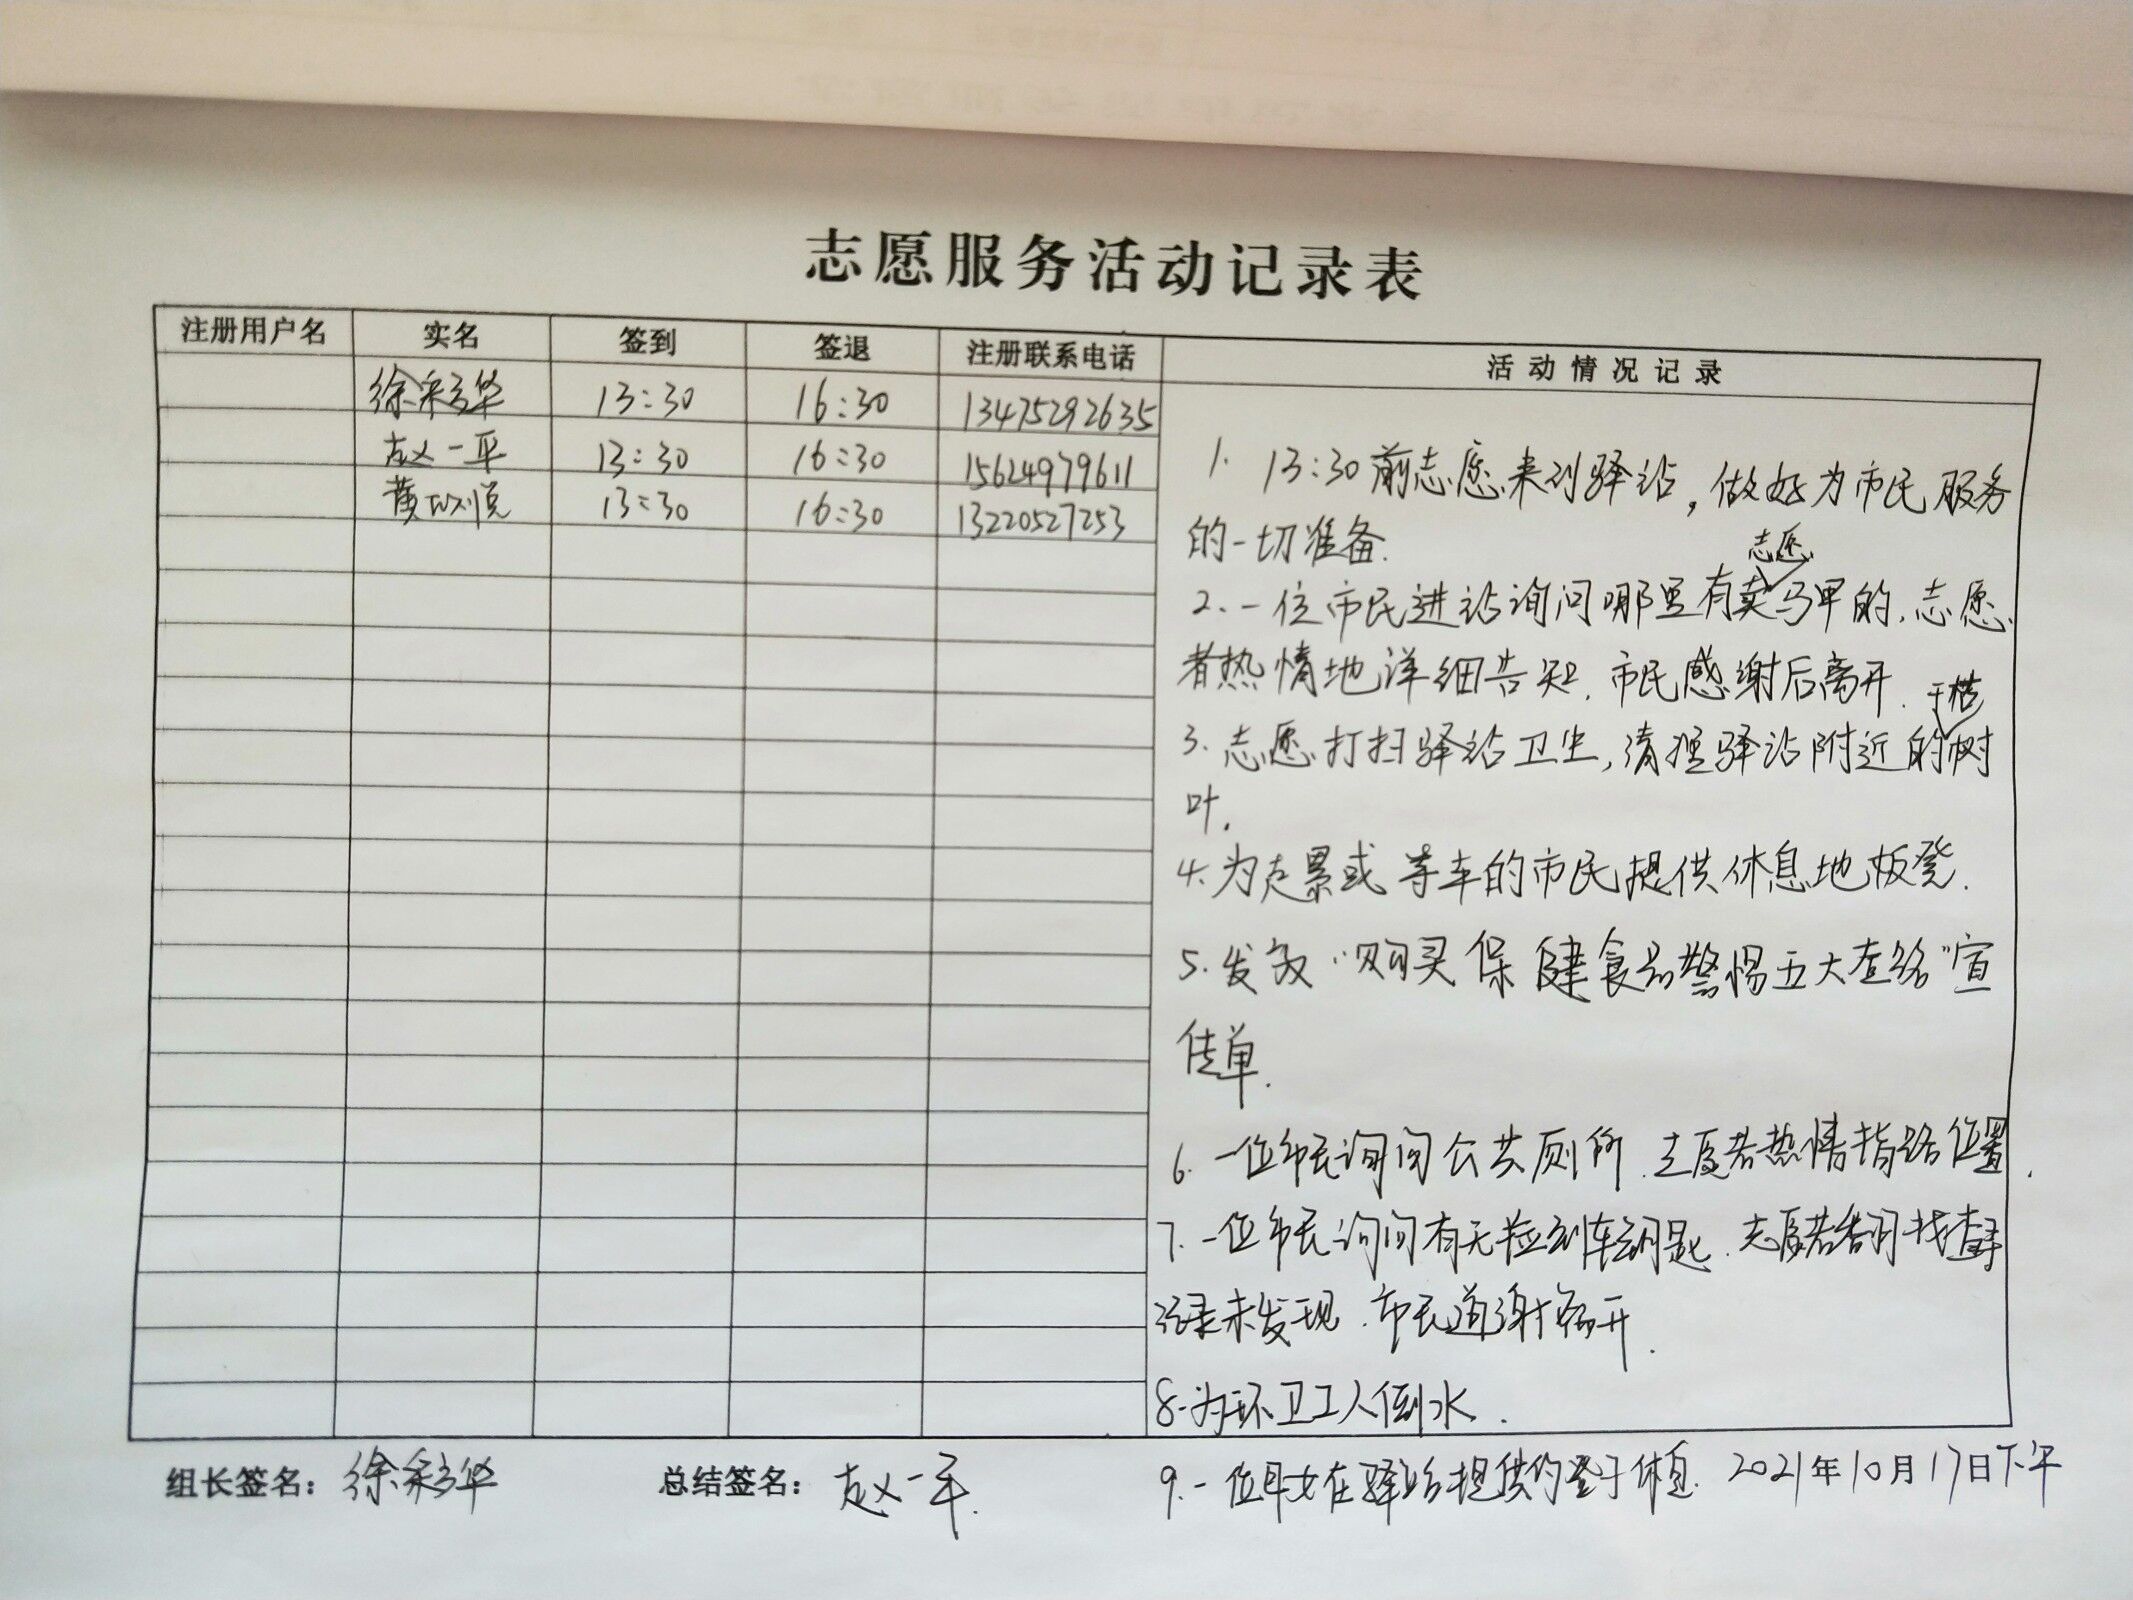 志愿服务活动记录表
注册用户名 实名 签到 签退 注册联系电话 活动情况记录
徐彩华 13:30 16:30 13475292635
赵一平 13:30 16:30 15624979611
黄 悦 13:30 16:30 13220527253
1. 13:30前志愿来到驿站,做好为市民服务
的一切准备.
2.一位市民进站询问哪里有卖志愿马甲的.志愿
者热情地详细告知.市民感谢后离开.
3.志愿打扫驿站卫生,清理驿站附近的干枯树
叶.
4.为走累或等车的市民提供休息地板凳.
5.发放"购买保健食品警惕五大套路"宣
传单.
6.一位市民询问公共厕所.志愿者热情指路位置.
7.一位市民询问有无捡到车钥匙.志愿者帮 找查寻
记录未发现.市民道谢离开.
8.为环卫工人倒水.
组长签名: 徐彩华 总结签名: 赵一平.
9.一位母女在驿站提供的凳子休息. 2021年10月17日下午